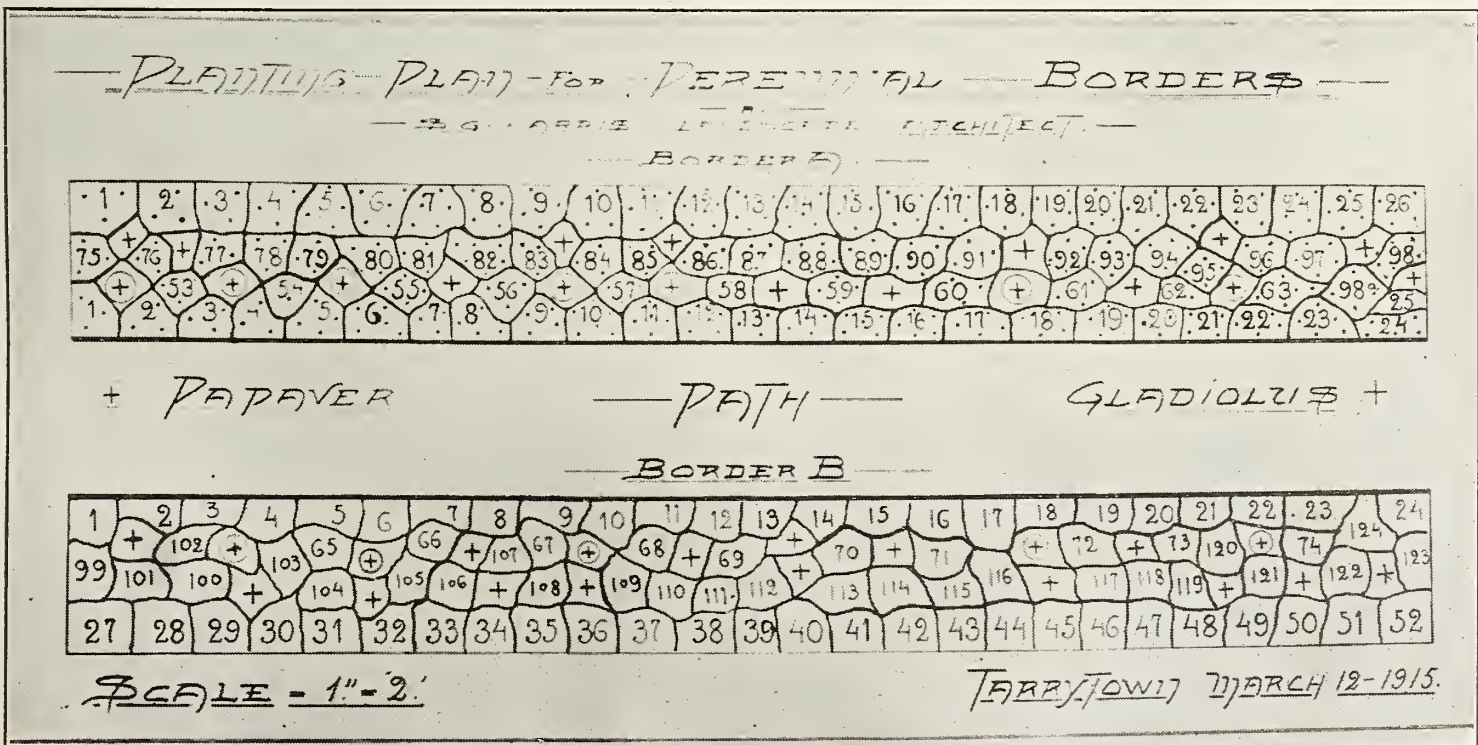 — PLANTING PLAN — FOR PERENNIAL — BORDERS —
LANDSCAPE ARCHITECT. —
— BORDER A. —
1 2 3 4 5 6 7 8 9 10 11 12 13 14 15 16 17 18 19 20 21 22 23 24 25 26
75 + 76 + 77 78 79 80 81 82 83 + 84 85 + 86 87 88 89 90 91 + 92 93 94 95 + 96 97 + 98
+ 53 + 54 + 55 + 56 + 57 + 58 + 59 + 60 + 61 + 62 + 63 98a + 25
1 2 3 4 5 6 7 8 9 10 11 12 13 14 15 16 17 18 19 20 21 22 23 24
+ PAPAVER — PATH — GLADIOLUS +
— BORDER B —
1 2 3 4 5 6 7 8 9 10 11 12 13 14 15 16 17 18 19 20 21 22 23 124 24
+ 102 + 65 + 66 + 107 67 + 68 + 69 + 70 + 71 + 72 + 73 120 + 74 123
99 101 100 + 103 104 + 105 106 + 108 + 109 110 111 112 + 113 114 115 116 + 117 118 119 + 121 + 122 +
27 28 29 30 31 32 33 34 35 36 37 38 39 40 41 42 43 44 45 46 47 48 49 50 51 52
SCALE = 1"-2'
TARRYTOWN MARCH 12-1915.